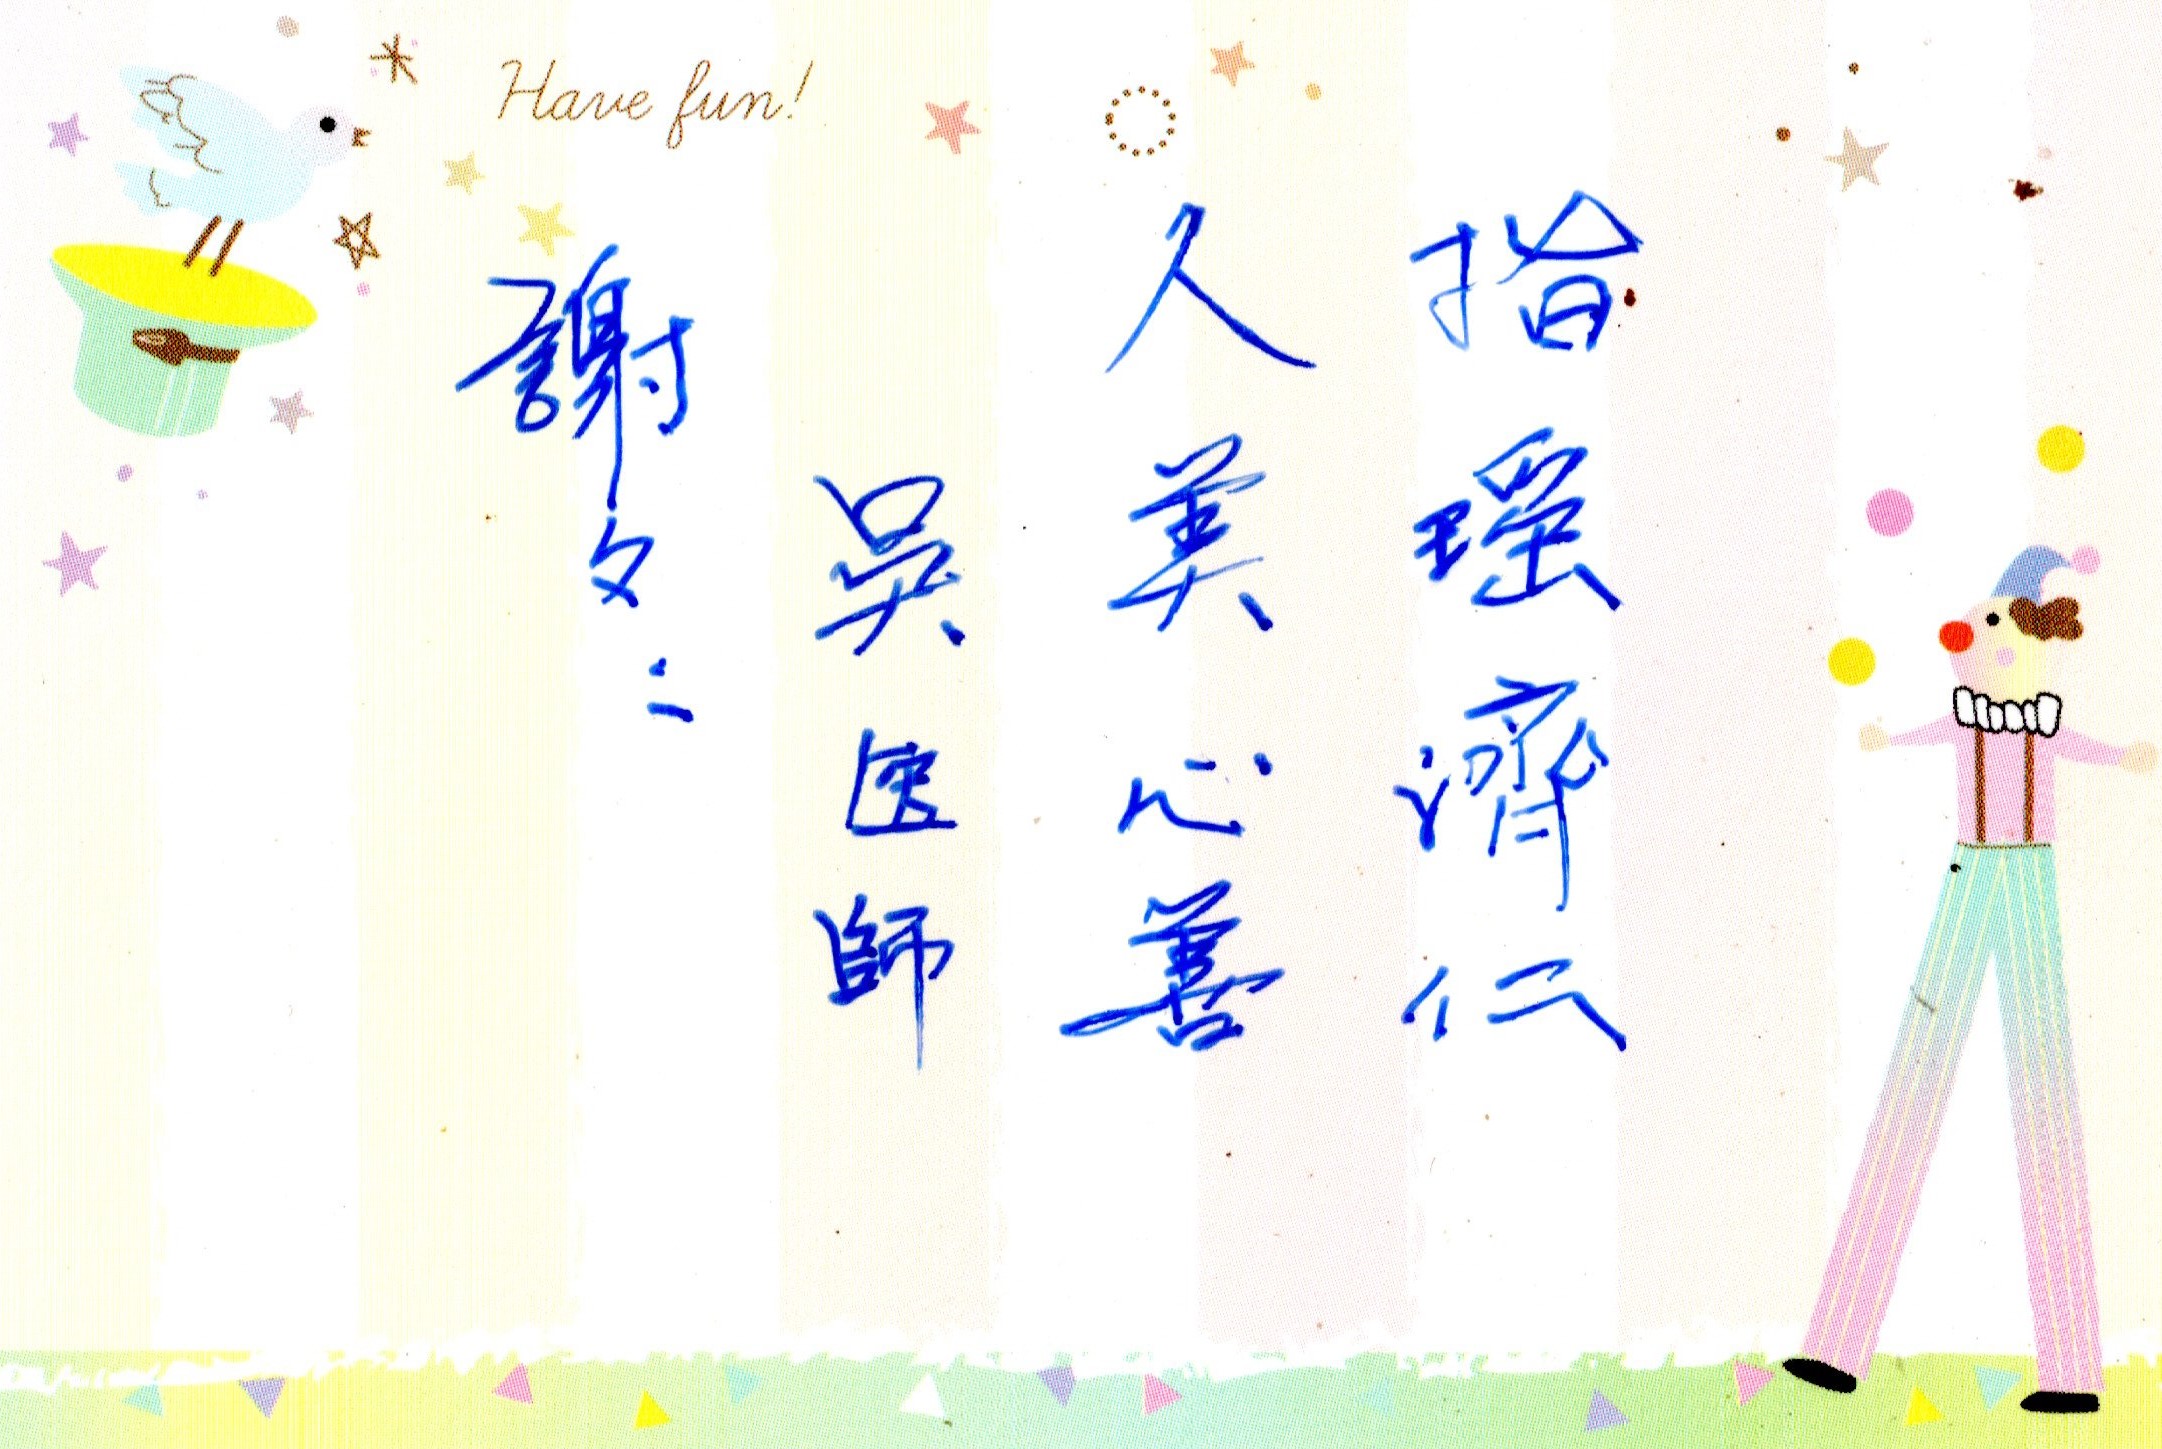 Have fun!
指瑶濟仁
人美心善
吳医師
謝々